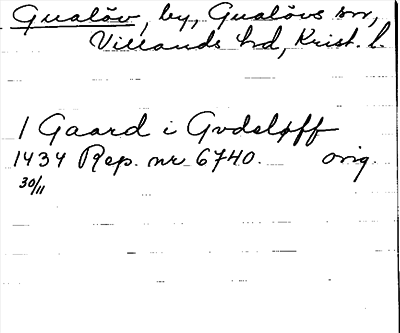 Gualöv, by, Gualövs sn,
Villands hd, Krist. l.
1 Gaard i Gvdsløff
1434 Rep. nr 6740. orig.
30/11